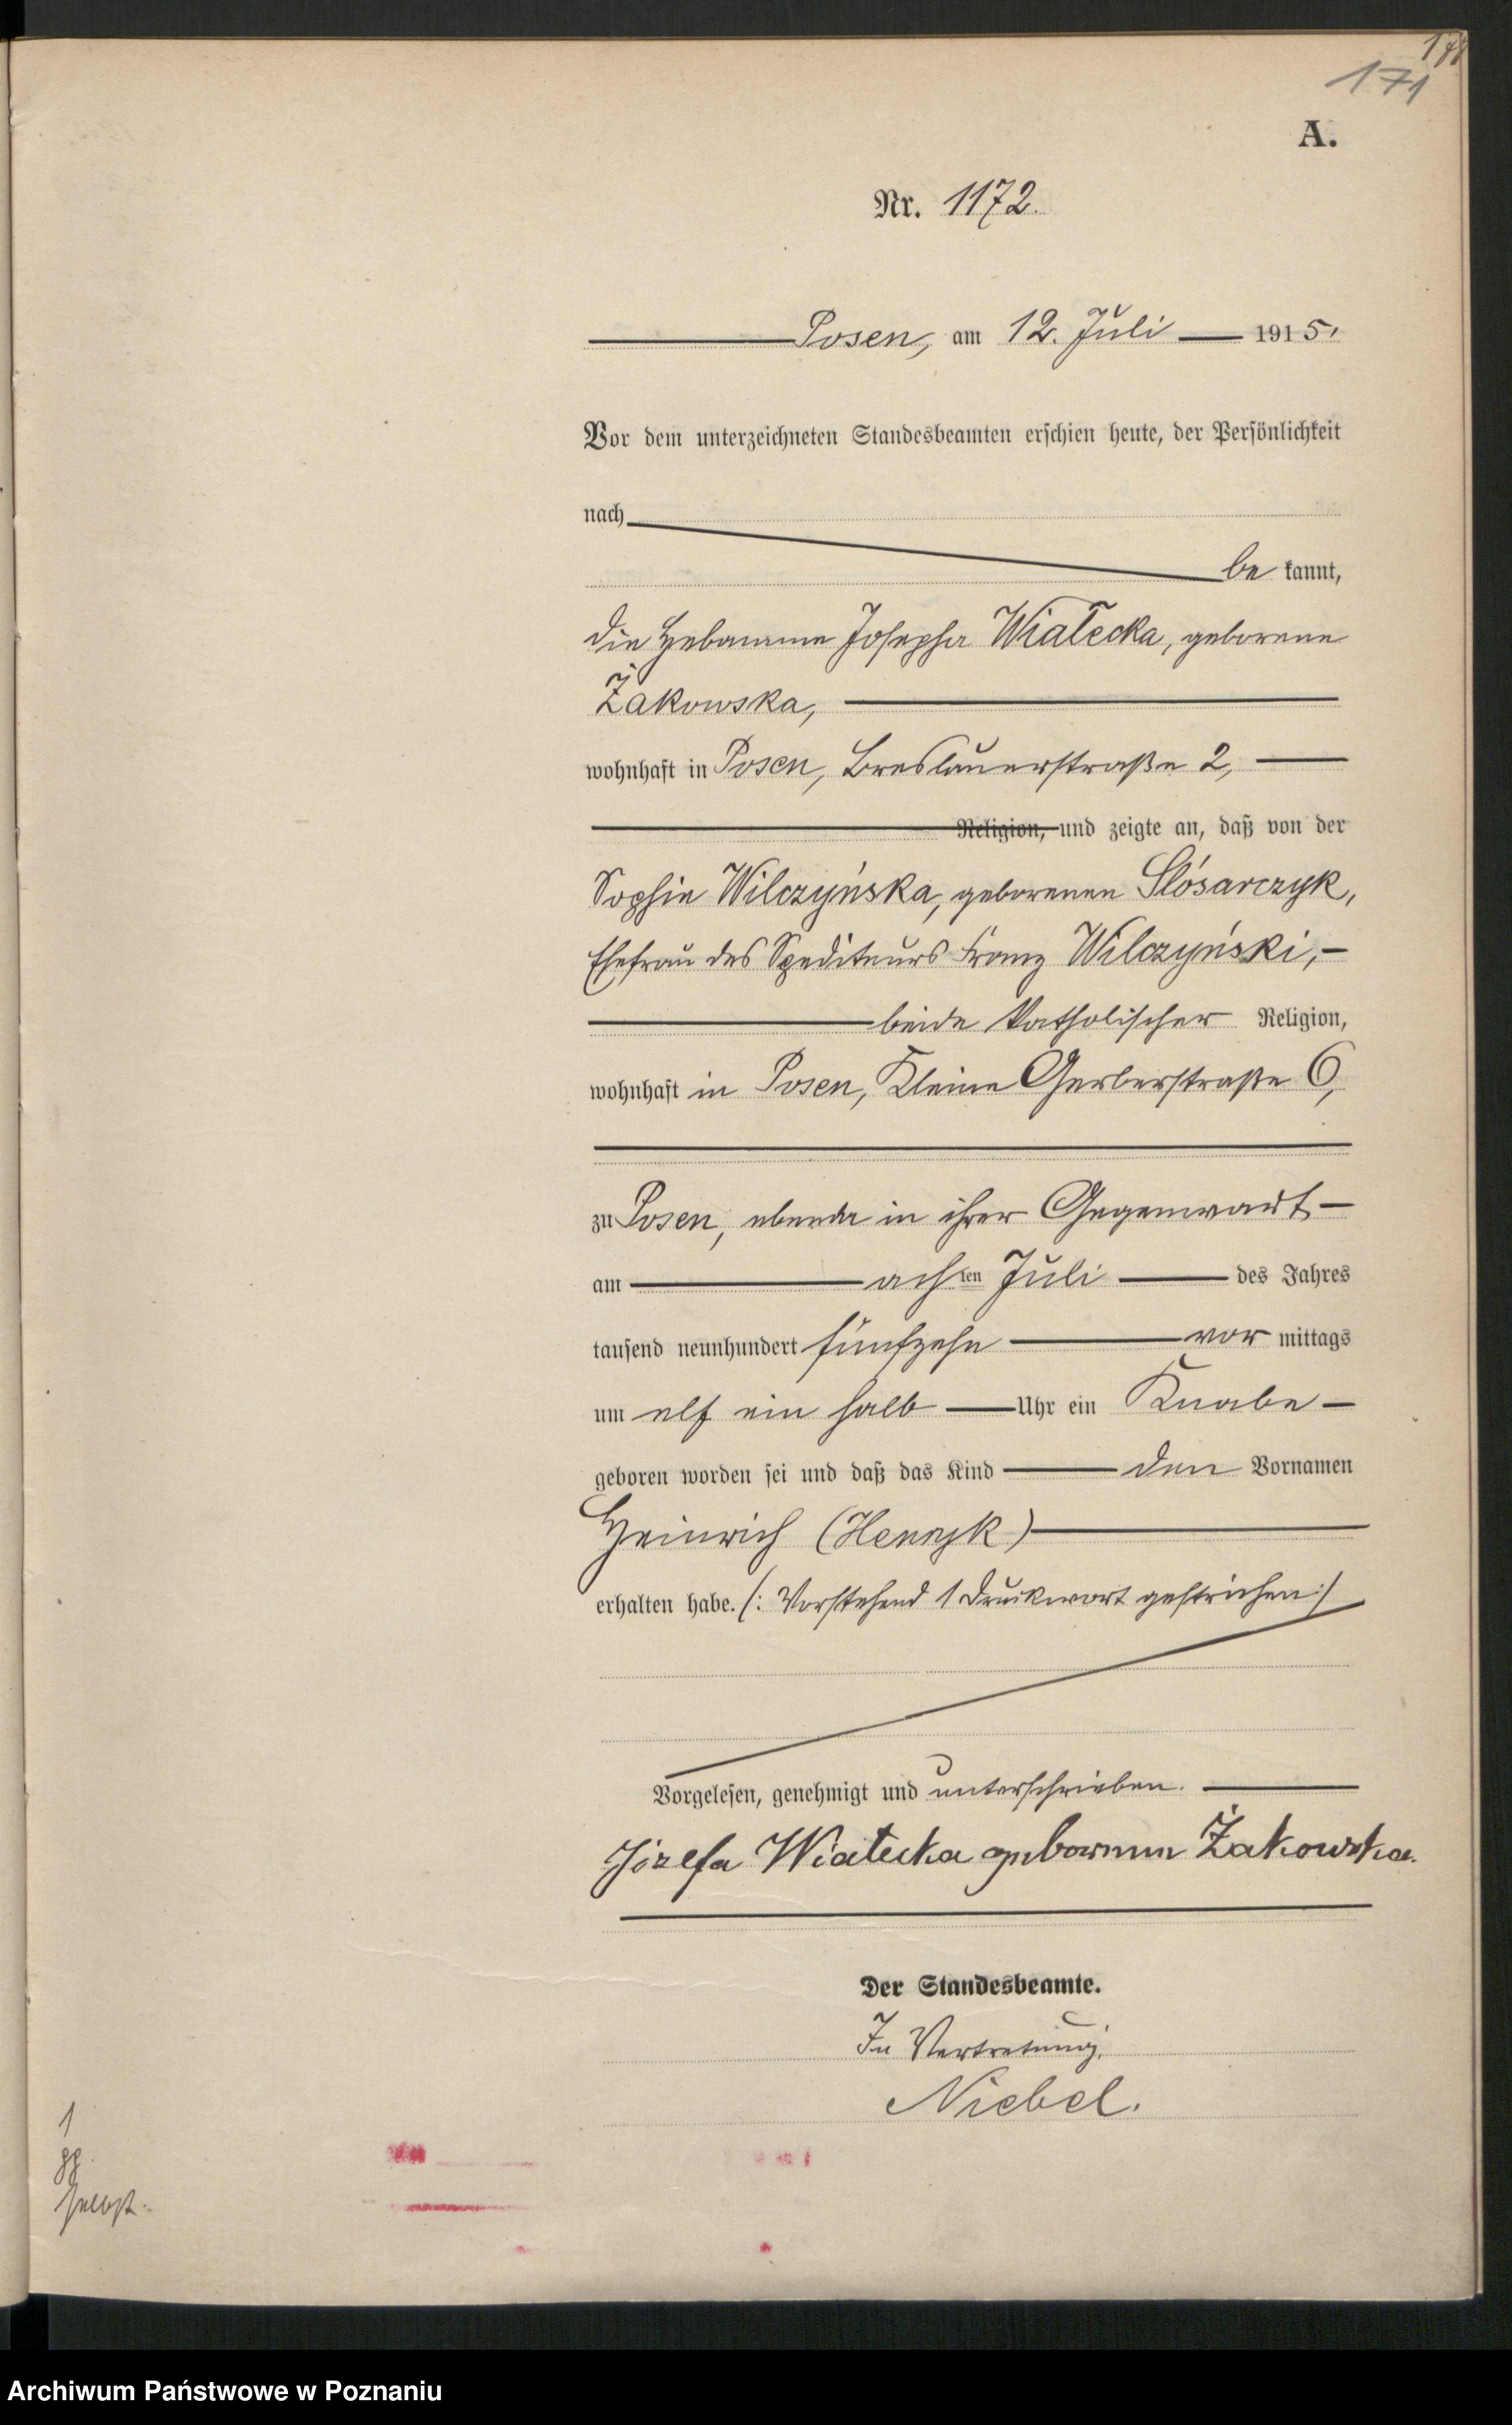 171
A.
Nr. 1172.
Posen, am 12. Juli 1915.
Vor dem unterzeichneten Standesbeamten erschien heute, der Persönlichkeit
nach
be kannt,
die Hebamme Josepha Wiałecka, geborene
Żakowska,
wohnhaft in Posen, Breslauerstraße 2,
Religion, und zeigte an, daß von der
Sophie Wilczyńska, geborenen Slósarczyk,
Ehefrau des Spediteurs Franz Wilczyński,
beide katholischer Religion,
wohnhaft in Posen, Kleine Gerberstraße 6,
zu Posen, ebenda in ihrer Gegenwart
am achten Juli des Jahres
tausend neunhundert fünfzehn vor mittags
um elf ein halb Uhr ein Knabe
geboren worden sei und daß das Kind den Vornamen
Heinrich (Henryk)
erhalten habe. /: Vorstehend 1 Druckwort gestrichen :/
Vorgelesen, genehmigt und unterschrieben.
Józefa Wiałecka geborenne Żakowska.
Der Standesbeamte.
In Vertretung.
Niebel.
1
Archiwum Państwowe w Poznaniu